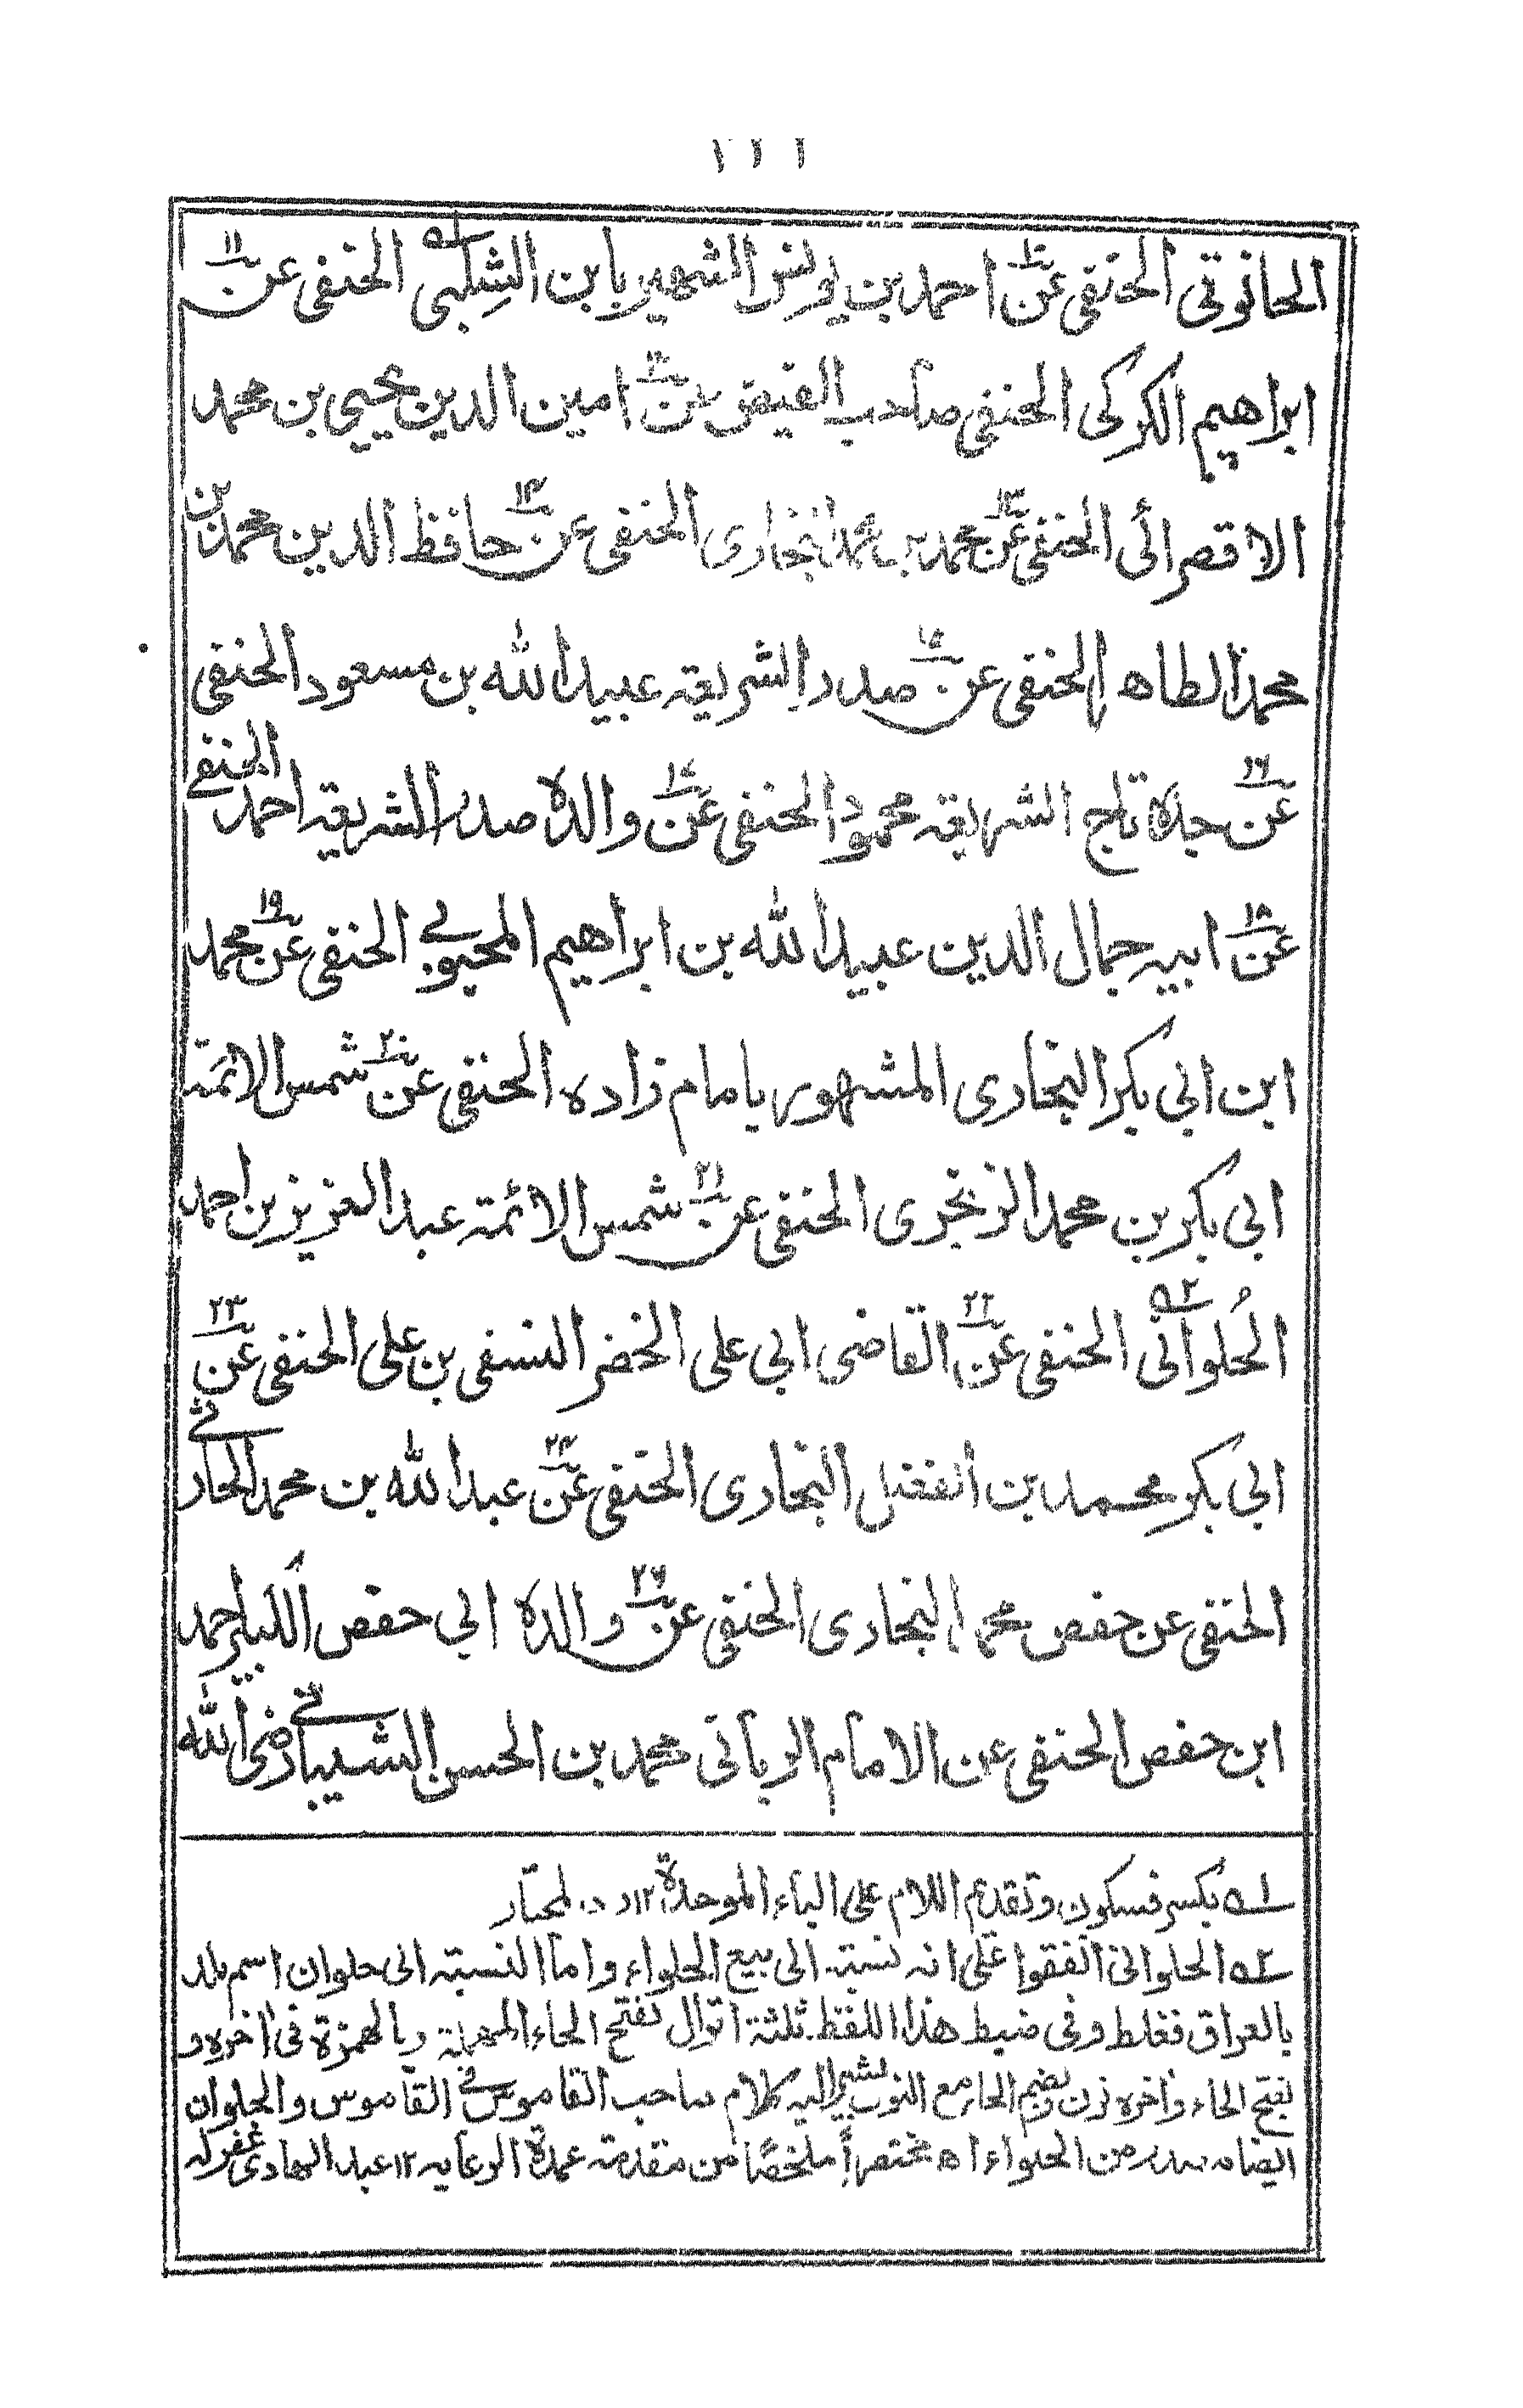 الحانوتی الحنفی عن۱۰ احمد بن یونس الشهیر بابن الشلبی۱ الحنفی عن۱۱
ابراهیم الکرکی الحنفی صاحب الفیض عن۱۲ امین الدین یحیی بن محمد
الاقصرائی الحنفی عن۱۳ محمد بن محمد البخاری الحنفی عن۱۴ حافظ الدین محمد بن
محمد الطاهر الحنفی عن۱۵ صدر الشریعه عبید الله بن مسعود الحنفی
عن۱۶ جده تاج الشریعه محمود الحنفی عن۱۷ والده صدر الشریعه احمد الحنفی
عن۱۸ ابیه جمال الدین عبید الله بن ابراهیم المحبوبی الحنفی عن۱۹ محمد
ابن ابی بکر البخاری المشهور بامام زاده الحنفی عن۲۰ شمس الائمة
ابی بکر بن محمد الزنجری الحنفی عن۲۱ شمس الائمة عبد العزیز بن احمد
الحُلوانی۲ الحنفی عن۲۲ القاضی ابی علی الخضر النسفی بن علی الحنفی عن۲۳
ابی بکر محمد بن الفضل البخاری الحنفی عن۲۴ عبد الله بن محمد الحارثی
الحنفی عن حفص محمد البخاری الحنفی عن۲۶ والده ابی حفص الکبیر احمد
ابن حفص الحنفی عن الامام الربانی محمد بن الحسن الشیبانی رضی الله
۱ بکسر فسکون وتقدیم اللام علی الباء الموحدة ۱۲ رد المحتار
۲ الحلوانی اتفقوا علی انه نسبته الی بیع الحلواء واما النسبته الی حلوان اسم بلد
بالعراق فغلط وفی ضبط هذا اللفظ ثلثة اقوال بفتح الحاء المهملة وبالهمزة فی اخره و
بفتح الحاء واخره نون وبضم الحاء مع النون یشیر الیه کلام صاحب القاموس فی القاموس والحلوان
ایضا من الحلواء اه مختصراً ملخصًا من مقدمته عمدة الرعایه ۱۲ عبد الهادی غفرله